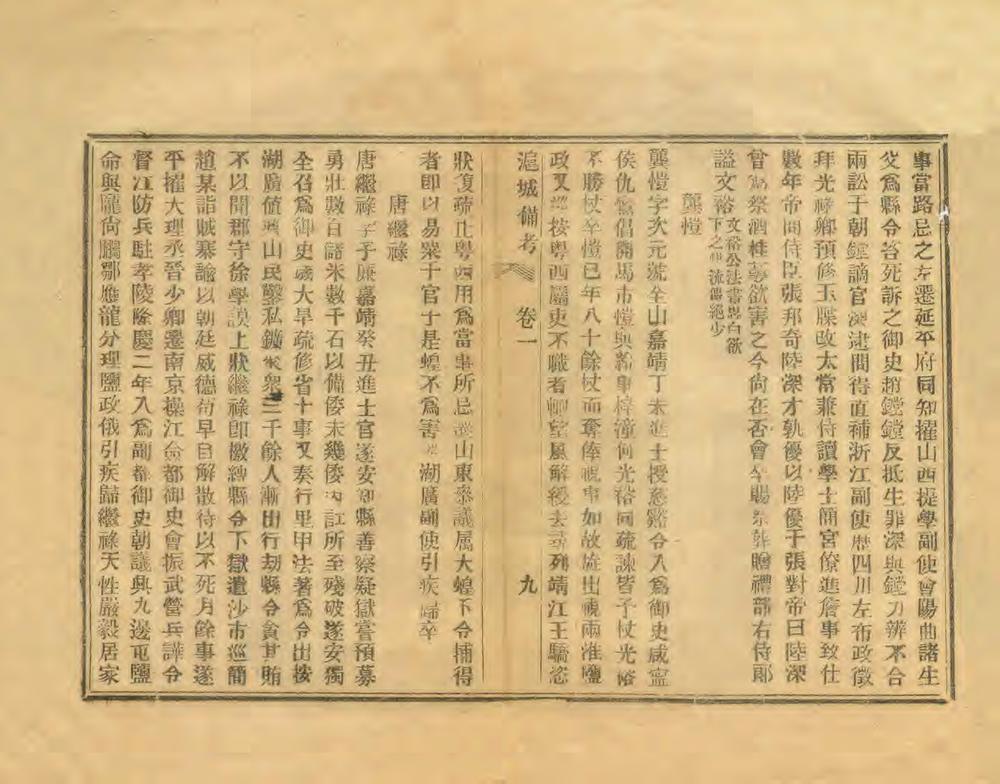 事當路忌之左遷延平府同知擢山西提學副使會陽曲諸生
父爲縣令笞死訴之御史趙鏜鏜反抵生罪深與鏜力辨不合
兩訟于朝鏜謫官深逮問得直補浙江副使歷四川左布政徵
拜光祿卿預修玉牒改太常兼侍讀學士簡宮僚進詹事致仕
數年帝問侍臣張邦奇陸深才孰優以陸優于張對帝曰陸深
曾爲祭酒桂萼欲害之今尚在否會卒賜祭葬贈禮部右侍郎
謚文裕
文裕公法書飛白欲
下之世流傳絕少
龔愷
龔愷字次元號全山嘉靖丁未進士授慈谿令入爲御史咸寧
侯仇鸞倡開馬市愷與給事梓潼何光裕同疏諫皆予杖光裕
不勝杖卒愷已年八十餘杖而奪俸視事如故旋出視兩淮鹽
政又巡按粵西屬吏不職者輒望風解綬去尋列靖江王驕恣
滬城備考
卷一
九
狀復疏止粵西用爲當事所忌 山東叅議属大蝗下令捕得
者即以易粟于官于是蝗不爲害 湖廣副使引疾歸卒
唐繼祿
唐繼祿字子廉嘉靖癸丑進士官遂安知縣善察疑獄嘗預募
勇壯數百儲米數千石以備倭未幾倭內訌所至殘破遂安獨
全召爲御史歲大旱疏修省十事又奏行里甲法著爲令出按
湖廣値 山民鑿私鑛聚衆三千餘人漸出行劫縣令貪其賄
不以聞郡守徐學謨上狀繼祿卽檄縛縣令下獄遣沙市巡簡
趙某詣賊寨諭以朝廷威德苟早自解散待以不死月餘事遂
平擢大理丞晉少卿遷南京操江僉都御史會振武營兵譁令
督江防兵駐孝陵隆慶二年入爲副都御史朝議興九邊屯鹽
命與龐尚鵬鄒應龍分理鹽政俄引疾歸繼祿天性嚴毅居家